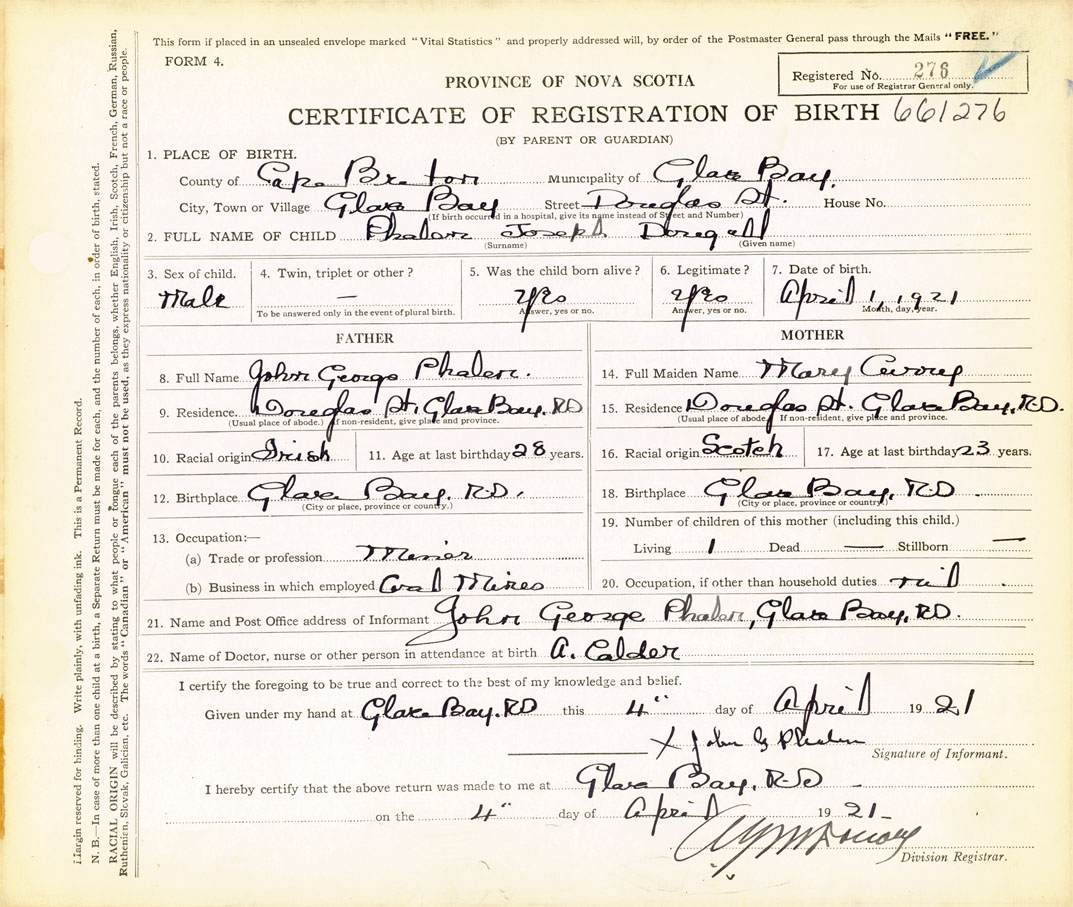 This form if placed in an unsealed envelope marked "Vital Statistics" and properly addressed will, by order of the Postmaster General pass through the Mails "FREE."
FORM 4.
Registered No. 276
For use of Registrar General only.
PROVINCE OF NOVA SCOTIA
CERTIFICATE OF REGISTRATION OF BIRTH 661276
(BY PARENT OR GUARDIAN)
1. PLACE OF BIRTH.
County of Cape Breton Municipality of Glace Bay.
City, Town or Village Glace Bay Street Douglas St. House No.
(If birth occurred in a hospital, give its name instead of Street and Number)
2. FULL NAME OF CHILD Phalen Joseph Dougall
(Surname) (Given name)
3. Sex of child. 4. Twin, triplet or other? 5. Was the child born alive? 6. Legitimate? 7. Date of birth.
Male — Yes Yes April 1, 1921
To be answered only in the event of plural birth. Answer, yes or no. Answer, yes or no. Month, day, year.
FATHER MOTHER
8. Full Name John George Phalen. 14. Full Maiden Name Mary Currey
9. Residence. Douglas St, Glace Bay. RD 15. Residence Douglas St. Glace Bay, R.D.
(Usual place of abode.) If non-resident, give place and province. (Usual place of abode.) If non-resident, give place and province.
10. Racial origin Irish 11. Age at last birthday 28 years. 16. Racial origin Scotch 17. Age at last birthday 23 years.
12. Birthplace Glace Bay. R.D. 18. Birthplace Glace Bay, R.D
(City or place, province or country.) (City or place, province or country.)
13. Occupation:— 19. Number of children of this mother (including this child.)
(a) Trade or profession Miner Living 1 Dead — Stillborn —
(b) Business in which employed Coal Mines 20. Occupation, if other than household duties nil
21. Name and Post Office address of Informant John George Phalen, Glace Bay, RD.
22. Name of Doctor, nurse or other person in attendance at birth A. Calder
I certify the foregoing to be true and correct to the best of my knowledge and belief.
Given under my hand at Glace Bay. RD this 4" day of April 19 21
X John G Phalen
Signature of Informant.
I hereby certify that the above return was made to me at Glace Bay, R.D
on the 4" day of April 19 21
Division Registrar.
Margin reserved for binding. Write plainly, with unfading ink. This is a Permanent Record.
N. B.—In case of more than one child at a birth, a Separate Return must be made for each, and the number of each, in order of birth, stated.
RACIAL ORIGIN will be described by stating to what people or tongue each of the parents belongs, whether English, Irish, Scotch, French, German, Russian,
Ruthenien, Slovak, Galician, etc. The words "Canadian" or "American" must not be used, as they express nationality or citizenship but not a race or people.